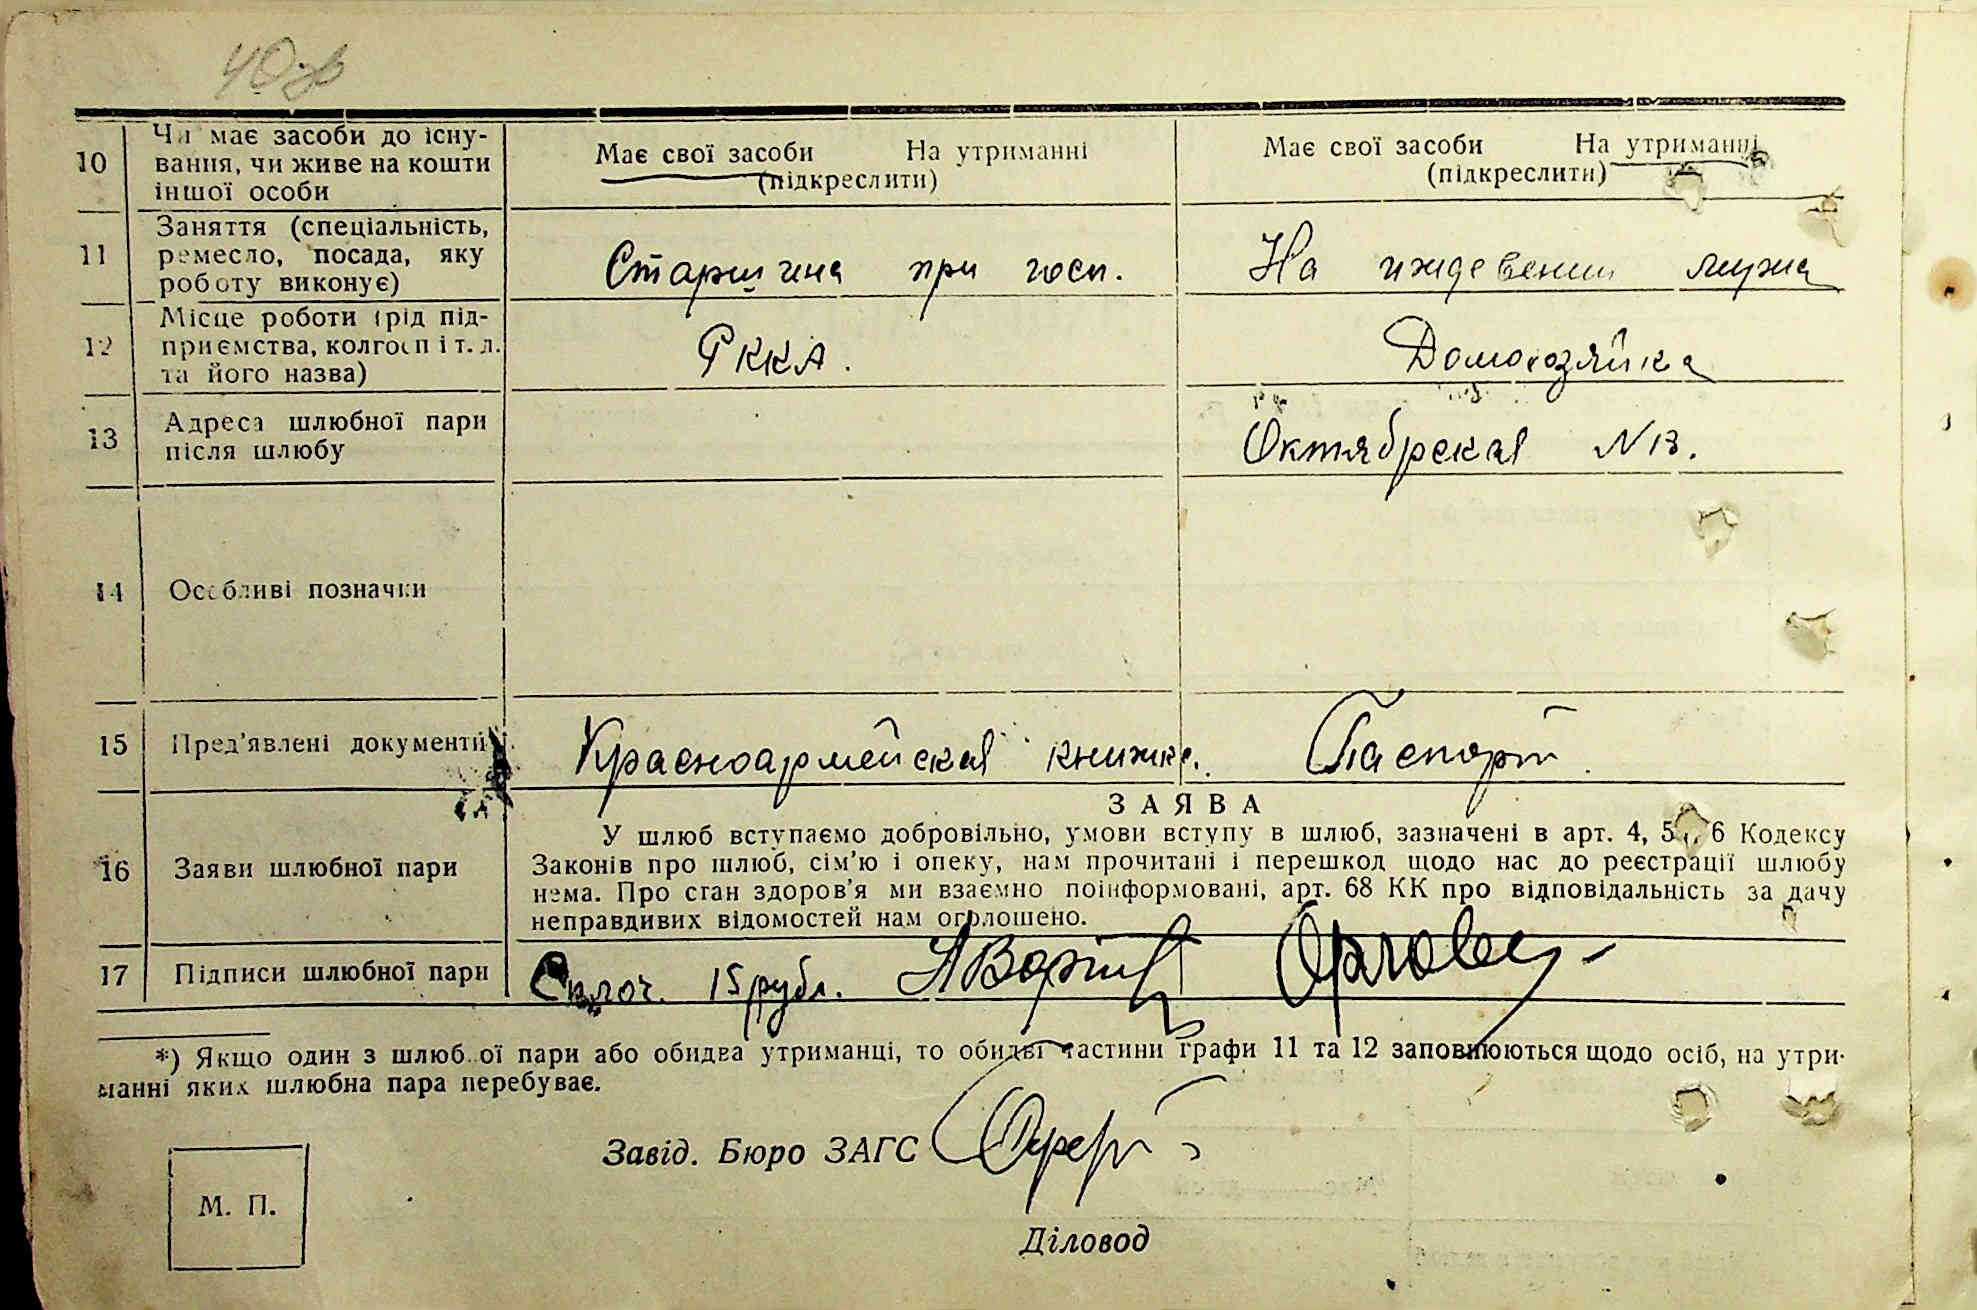 40зв
10 Чи має засоби до існу-
вання, чи живе на кошти
іншої особи
Має свої засоби На утриманні
(підкреслити)
Має свої засоби На утриманні
(підкреслити)
11 Заняття (спеціальність,
ремесло, посада, яку
роботу виконує)
Старшина при госп.
На иждевении мужа
12 Місце роботи (рід під-
приємства, колгосп і т. д.
та його назва)
РККА.
Домохозяйка
13 Адреса шлюбної пари
після шлюбу
Октябрская N 13.
14 Особливі позначки
15 Пред'явлені документи
Красноармейская книжка.
Паспорт.
16 Заяви шлюбної пари
ЗАЯВА
У шлюб вступаємо добровільно, умови вступу в шлюб, зазначені в арт. 4, 5 і 6 Кодексу
Законів про шлюб, сім'ю і опеку, нам прочитані і перешкод щодо нас до реєстрації шлюбу
нема. Про стан здоров'я ми взаємно поінформовані, арт. 68 КК про відповідальність за дачу
неправдивих відомостей нам оголошено.
17 Підписи шлюбної пари
15 рубл.
*) Якщо один з шлюбної пари або обидва утриманці, то обидві частини графи 11 та 12 заповнюються щодо осіб, на утри-
манні яких шлюбна пара перебуває.
Завід. Бюро ЗАГС
М. П.
Діловод